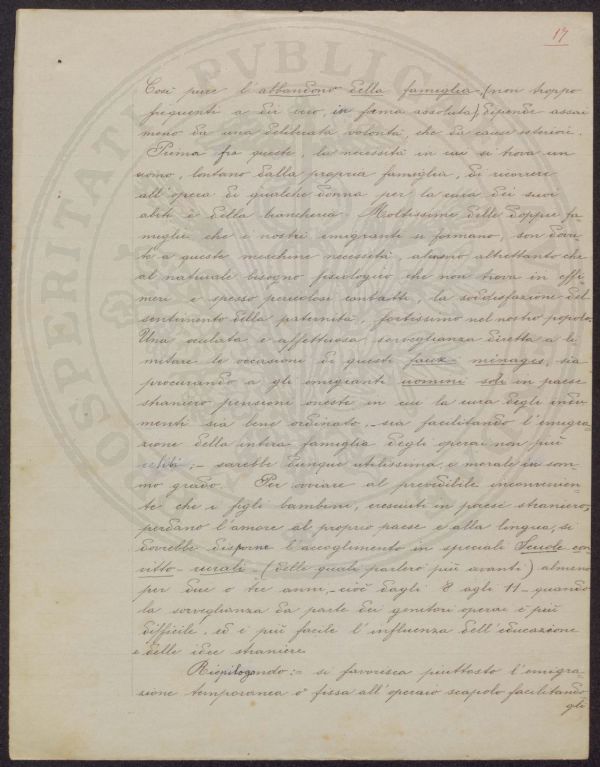 17
Così pure l'abbandono della famiglia - (non troppo
frequenti a dir vero, in forma assoluta) dipende assai
meno da una deliberata volontà, che da cause esteriori.
Prima fra queste, la necessità in cui si trova un
uomo, lontano dalla propria famiglia, di ricorrere
all'opera di qualche donna per la cura dei suoi
abiti e della biancheria. Moltissime delle doppie fa
miglie che i nostri emigranti si formano, son dovu-
te a queste meschine necessità, almeno altrettanto che
al naturale bisogno fisiologico che non trova in effi
meri e spesso pericolosi contatti, la soddisfazione del
sentimento della paternità, fortissimo nel nostro popolo.
Una oculata e affettuosa sorveglianza diretta a li
mitare le occasioni di questi faux - ménages, sia
procurando a gli emigranti uomini soli in paese
straniero pensioni oneste in cui la cura degli indu
menti sia bene ordinata, - sia facilitando l'emigra
zione della intera famiglia degli operai non più
celibi; - sarebbe dunque utilissima e morale in som
mo grado. Per ovviare al prevedibile inconvenien
te che i figli bambini, cresciuti in paese straniero,
perdano l'amore al proprio paese e alla lingua, si
dovrebbe disporne l'accoglimento in speciali Scuole con
vitto - rurali - (delle quali parlerò più avanti) almeno
per due o tre anni, - cioè dagli 8 agli 11 - quando
la sorveglianza da parte dei genitori operai è più
difficile, ed è più facile l'influenza dell'educazione
e delle idee straniere.
Riepilogando: - si favorisca piuttosto l'emigra
zione temporanea o fissa all'operaio scapolo facilitando
gli
PROSPERITATI PVBLICAE